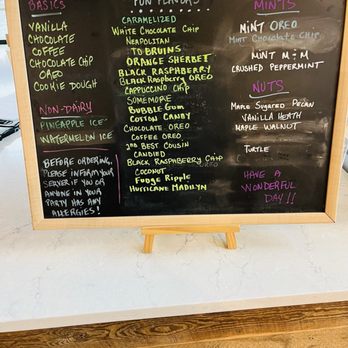 BASICS
VANILLA
CHOCOLATE
COFFEE
CHOCOLATE CHIP
OREO
COOKIE DOUGH
NON-DAIRY
PINEAPPLE ICE
WATERMELON ICE
BEFORE ORDERING,
PLEASE INFORM YOUR
SERVER IF YOU OR
ANYONE IN YOUR
PARTY HAS ANY
ALLERGIES!
FUN FLAVORS
CARAMELIZED
WHITE CHOCOLATE CHIP
NEAPOLITAN
TO BRUINS
ORANGE SHERBET
BLACK RASPBERRY
BLACK RASPBERRY OREO
CAPPUCCINO CHIP
SOMEMORE
BUBBLE GUM
COTTON CANDY
CHOCOLATE OREO
COFFEE OREO
2ND BEST COUSIN
CANDIED
BLACK RASPBERRY CHIP
COCONUT
FUDGE RIPPLE
HURRICANE MADILYN
MINTS
MINT OREO
MINT CHOCOLATE CHIP
MINT M&M
CRUSHED PEPPERMENT
NUTS
MAPLE SUGARED PECAN
VANILLA HEATH
MAPLE WALNUT
TURTLE
HAVE A
WONDERFUL
DAY!!